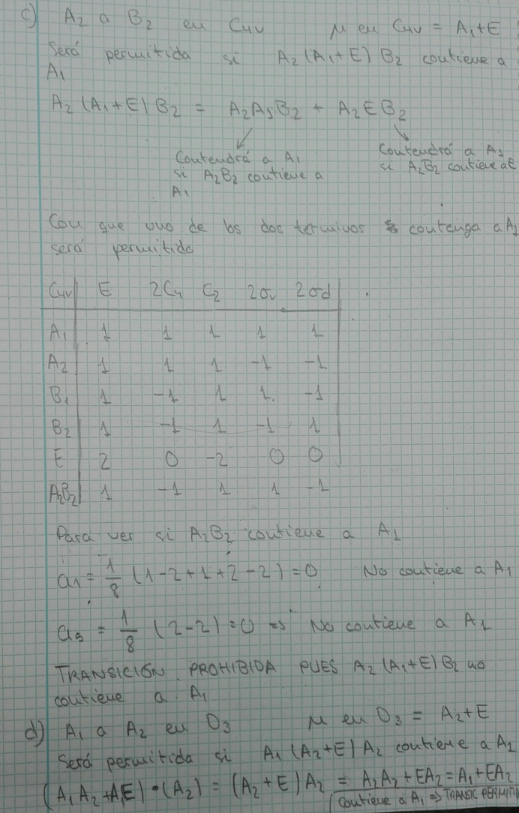 c) A₂ a B₂ en C₄ᵥ μ en C₄ᵥ = A₁+E
Será permitida si A₂(A₁+E)B₂ contiene a
A₁
A₂(A₁+E)B₂ = A₂A₁B₂ + A₂EB₂
Contendrá a A₁
si A₂B₂ contiene a
A₁
Contendrá a A₁
si A₂B₂ contiene a E
Con que uno de los dos terminos contenga a A₁
será permitido
C₄ᵥ E 2C₄ C₂ 2σᵥ 2σd
A₁ 1 1 1 1 1
A₂ 1 1 1 -1 -1
B₁ 1 -1 1 1 -1
B₂ 1 -1 1 -1 1
E 2 0 -2 0 0
A₂B₂ 1 -1 1 1 -1
Para ver si A₂B₂ contiene a A₁
a₁ = 1/8 (1-2+1+2-2)=0 No contiene a A₁
a₅ = 1/8 (2-2)=0 => No contiene a A₁
TRANSICIÓN PROHIBIDA PUES A₂(A₁+E)B₂ no
contiene a A₁
d) A₁ a A₂ en D₃ μ en D₃ = A₂+E
Será permitida si A₁(A₂+E)A₂ contiene a A₁
(A₁A₂+A₁E)·(A₂) = (A₂+E)A₂ = A₂A₂+EA₂=A₁+EA₂
contiene a A₁ => TRANSIC PERMITI